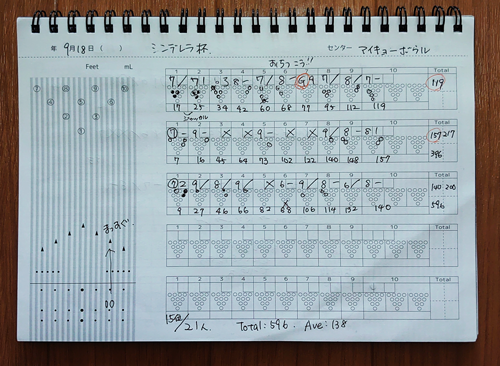 年 9月18日 ( ) シンデレラ杯 センター マイキューボウル
Feet mL
おちつこう!!
1 2 3 4 5 6 7 8 9 10 Total
119
17 25 34 42 60 68 77 95 112 119
1 2 3 4 5 6 7 8 9 10 Total
157 217
7 16 45 64 73 102 122 140 148 157
396
1 2 3 4 5 6 7 8 9 10 Total
140 200
9 27 46 66 82 88 106 114 132 140
596
まっすぐ!
1 2 3 4 5 6 7 8 9 10 Total
1 2 3 4 5 6 7 8 9 10 Total
15位/21人 Total:596 Ave:138